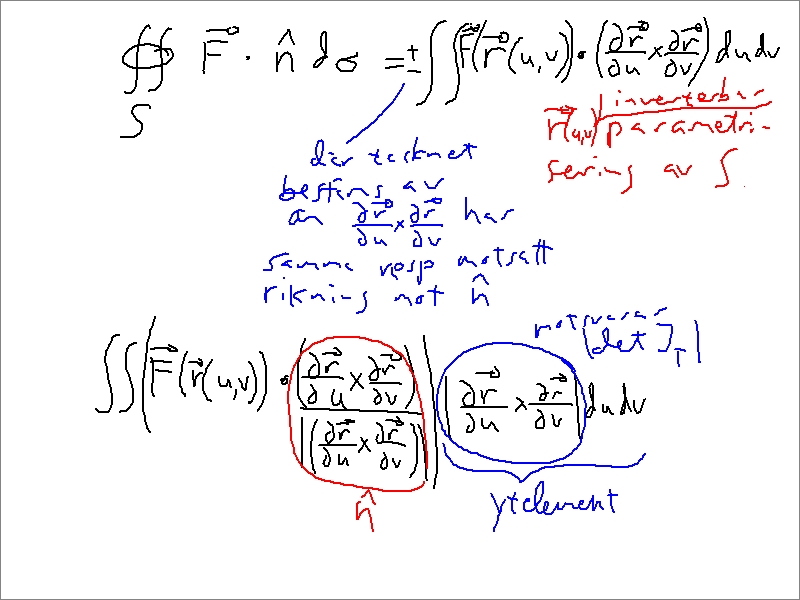 ∯_S F⃗ · n̂ dσ = ± ∬ F⃗(r⃗(u,v)) · (∂r⃗/∂u × ∂r⃗/∂v) du dv
r⃗(u,v) inverterbar
parametri-
sering av S.
där tecknet
bestäms av
om ∂r⃗/∂u × ∂r⃗/∂v har
samma resp motsatt
rikning mot n̂
motsvarar
|det J_T|
∬ (F⃗(r⃗(u,v)) · (∂r⃗/∂u × ∂r⃗/∂v) / |(∂r⃗/∂u × ∂r⃗/∂v)|) |∂r⃗/∂u × ∂r⃗/∂v| du dv
n̂
ytelement